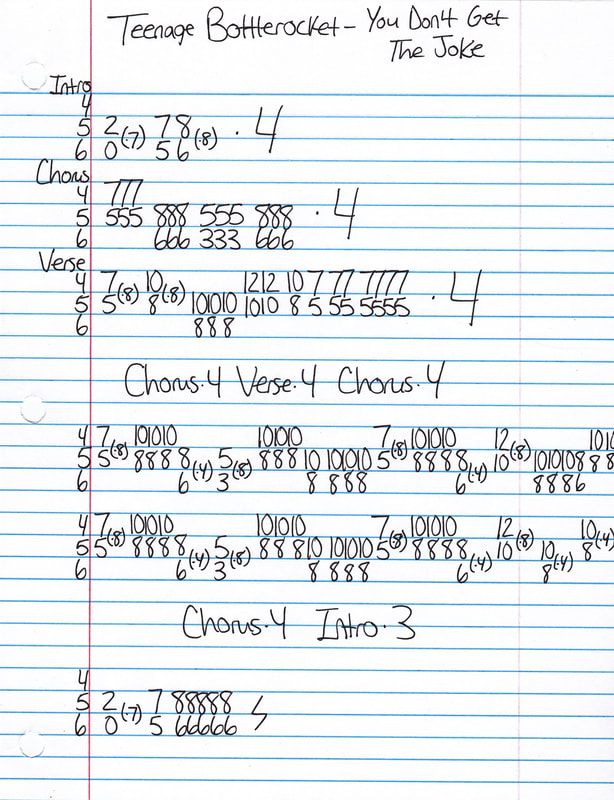 Teenage Bottlerocket - You Don't Get
The Joke
Intro
4
5 2(·7) 7 8(·8) · 4
6 0 5 6
Chorus
4 777
5 555 888 555 888 · 4
6 666 333 666
Verse
4 7(·8) 10(·8) 1212 10 7 77 7777
5 5 8 1010 1010 8 5 55 5555 · 4
6 888
Chorus·4 Verse·4 Chorus·4
4 7(·8) 101010 101010 7(·8) 101010 12(·8) 1010
5 5 8888(·4) 5(·8) 888 10 101010 5 8888(·4) 10 1010108 88
6 6 3 8 888 6 8886
4 7(·8) 101010 101010 7(·8) 101010 12(·8) 10(·4)
5 5 8888(·4) 5(·8) 88810 101010 5 8888(·4) 10 10(·4) 8
6 6 3 8 888 6 8
Chorus·4 Intro·3
4
5 2(·7) 7 88888
6 0 5 66666